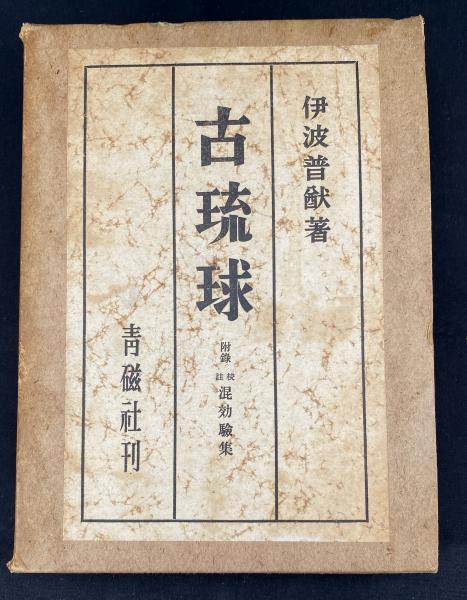 伊波普猷著
古琉球
附錄 校註 混効驗集
青磁社刊